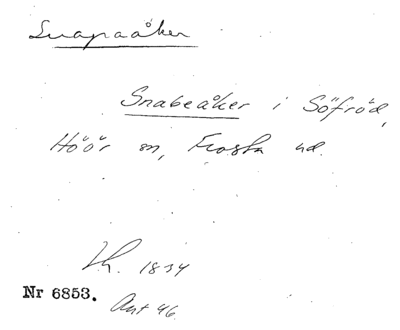 Snapaåker
Snabeåker i Söfröd,
Höör sn, Frosta hd.
1834
Nr 6853.
Ant 46.